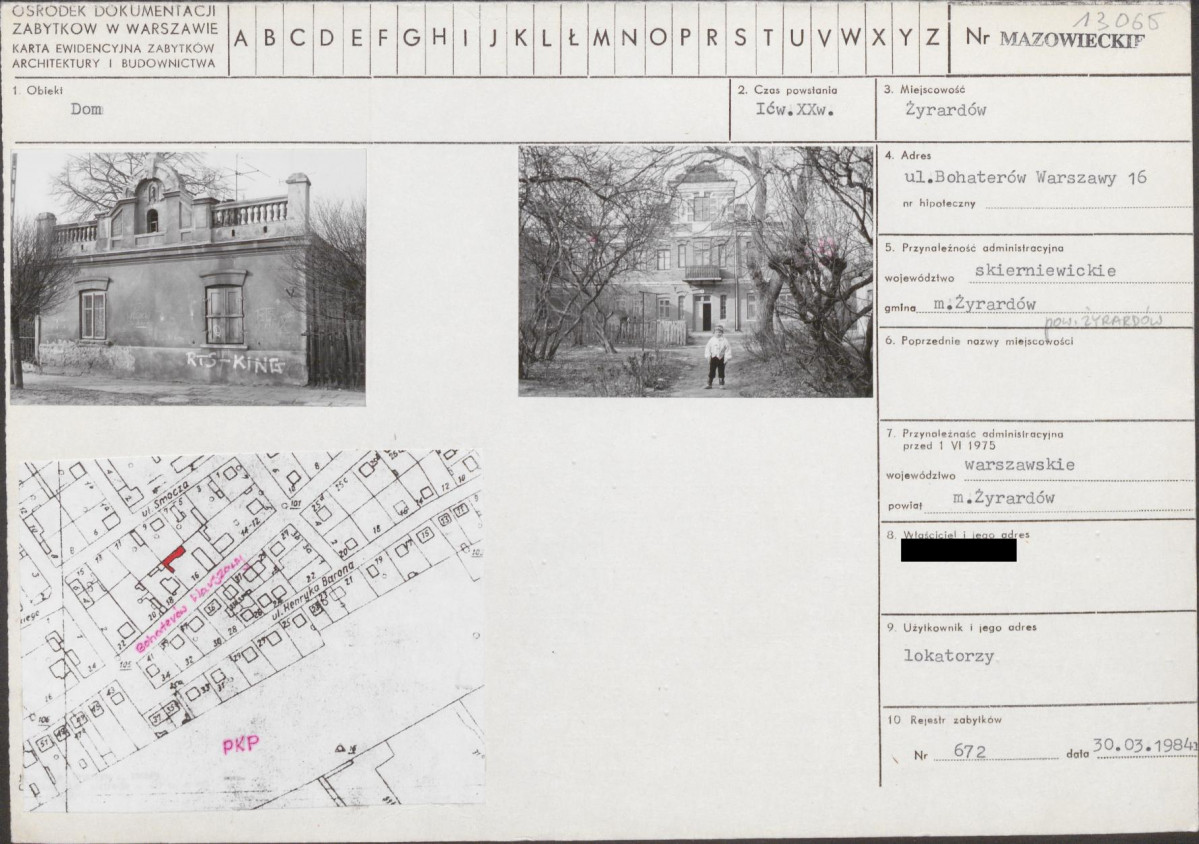 OŚRODEK DOKUMENTACJI
ZABYTKÓW W WARSZAWIE
KARTA EWIDENCYJNA ZABYTKÓW
ARCHITEKTURY I BUDOWNICTWA
A B C D E F G H I J K L Ł M N O P R S T U V W X Y Z
Nr MAZOWIECKIE
13065
1. Obiekt
Dom
2. Czas powstania
Ićw.XXw.
3. Miejscowość
Żyrardów
4. Adres
ul.Bohaterów Warszawy 16
nr hipoteczny
5. Przynależność administracyjna
województwo skierniewickie
gmina m.Żyrardów
pow. ŻYRARDÓW
6. Poprzednie nazwy miejscowości
7. Przynależność administracyjna
przed 1 VI 1975
województwo warszawskie
powiat m.Żyrardów
8. Właściciel i jego adres
9. Użytkownik i jego adres
lokatorzy
10 Rejestr zabytków
Nr 672 data 30.03.1984r
RTS-KING
ul. Smocza
Bohaterów Warszawy
ul. Henryka Barona
PKP